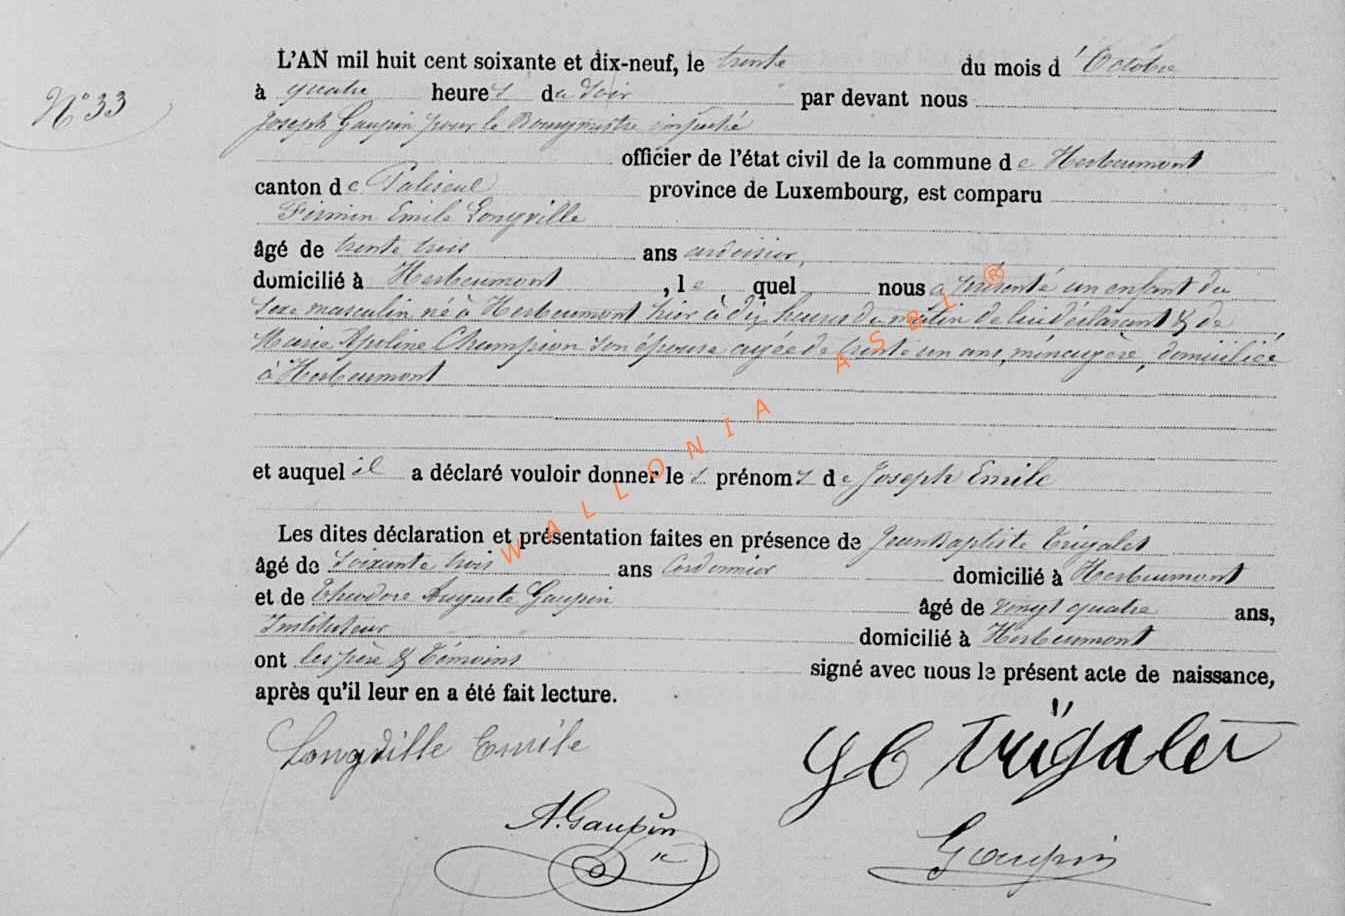 N° 33
L'AN mil huit cent soixante et dix-neuf, le trente du mois d'Octobre
à quatre heures du soir par devant nous
Joseph Gaupin pour le Bourgmestre empêché
officier de l'état civil de la commune de Herbeumont
canton de Paliseul province de Luxembourg, est comparu
Firmin Emile Longville
âgé de trente trois ans ardoisier,
domicilié à Herbeumont, lequel nous a présenté un enfant du
sexe masculin né à Herbeumont hier à dix heures du matin de lui déclarant & de
Marie Apoline Champion son épouse agée de trente un ans, ménagère, domiciliée
à Herbeumont
et auquel il a déclaré vouloir donner les prénoms de Joseph Emile
Les dites déclaration et présentation faites en présence de Jean Baptiste Trigalet
âgé de soixante trois ans Cordonnier domicilié à Herbeumont
et de Théodore Auguste Gaupin âgé de vingt quatre ans,
Instituteur domicilié à Herbeumont
ont les père & témoins signé avec nous le présent acte de naissance,
après qu'il leur en a été fait lecture.
Longville Emile
Trigalet
A. Gaupin
Gaupin
WALLONIA ASBL ®